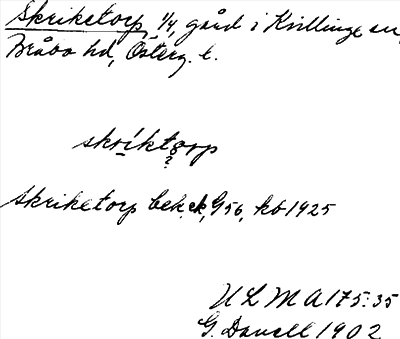 Skriketorp, 1/4, gård i Kvillinge sn,
Bråbo hd, Österg. l.
skríktorp
Skriketorp bek.ek, G56, kb 1925
ULMA 175:35
G. Danell 1902